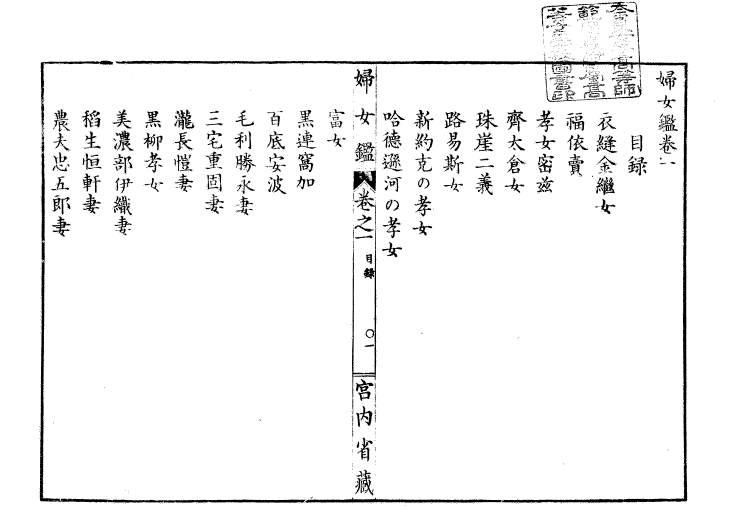 婦女鑑卷一
目録
衣縫金繼女
福依賣
孝女宻茲
齊大倉女
珠崖二義
路易斯女
新約克の孝女
哈德遜河の孝女
婦女鑑
卷之一
目録
〇一
宮内省藏
富女
黒連窩加
百底安波
毛利勝永妻
三宅重固妻
瀧長愷妻
黒柳孝女
美濃部伊織妻
稻生恒軒妻
農夫忠五郎妻